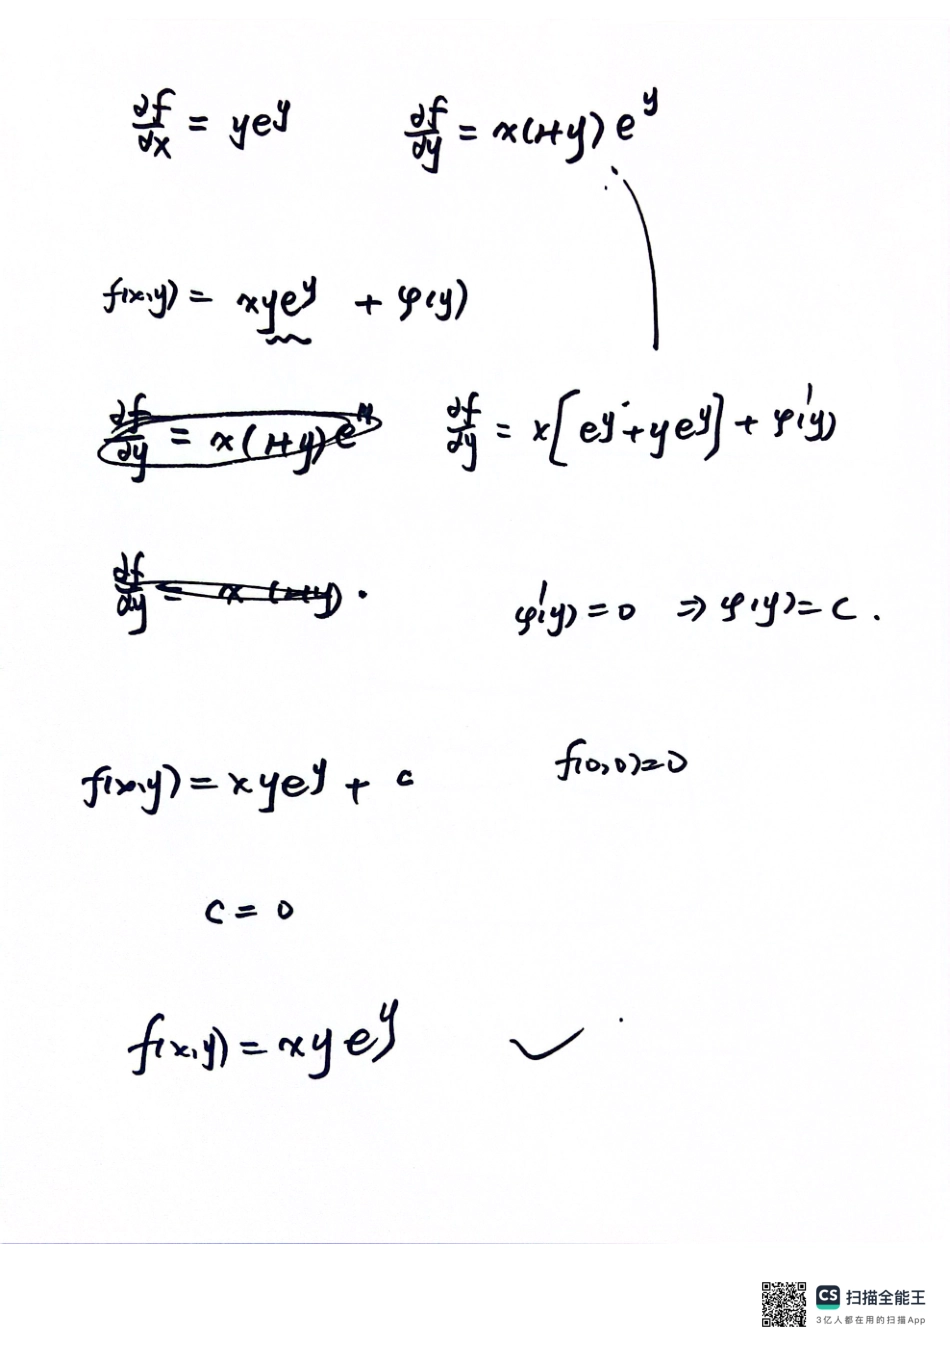 ∂f/∂x = ye^y    ∂f/∂y = x(1+y)e^y
f(x,y) = xye^y + φ(y)
∂f/∂y = x(1+y)e^y    ∂f/∂y = x[e^y+ye^y] + φ'(y)
∂f/∂y = x (1+y) .    φ'(y) = 0 ⇒ φ(y) = C .
f(x,y) = xye^y + c    f(0,0)=0
C = 0
f(x,y) = xye^y ✓
CS 扫描全能王
3亿人都在用的扫描App